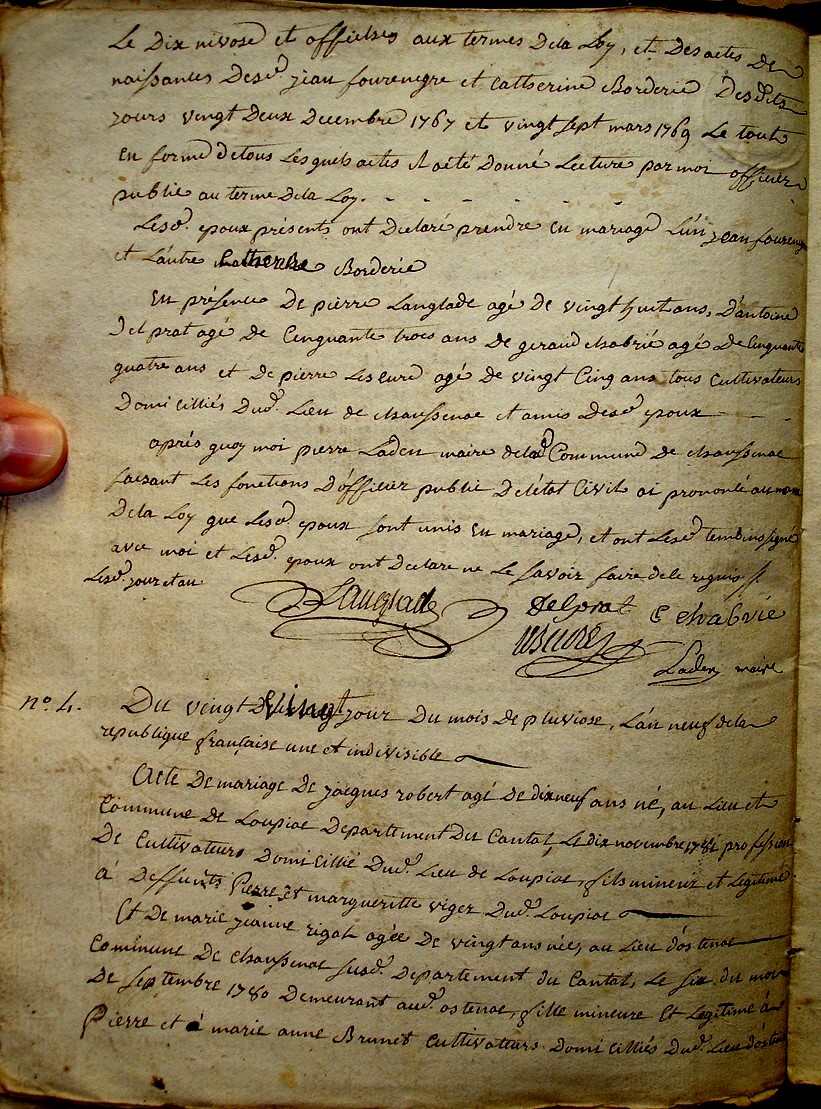 Le Dix nivose et affiches aux termes Dela Loy, et Des actes De
naissances Desd. jean fourenegre et Catherine Borderie Desdits
jours vingt Deux Decembre 1767 et vingt sept mars 1769 Le tout
En forme De tous Lesquels actes Il a été Donné Lecture par moi officier
public au terme Dela Loy. - - - - - -
Lesd. epoux présents ont Déclaré prendre En mariage L'un jean foureneg
et L'autre Catherine Borderie
En présence De pierre Langlade agé De vingt huit ans, D'antoine
Delprat agé De Cinquante trois ans De geraud chabrié agé De Cinquante
quatre ans et De pierre Leseure agé De vingt Cinq ans tous Cultivateurs
Domicilliés Dud. Lieu de chaussenac et amis Desd. epoux - -
après quoy moi pierre Laden maire delad. Commune De chaussenac
faisant Les fonctions D'officier public De L'état Civil ai prononcé au nom
Dela Loy que Lesd. epoux sont unis En mariage, et ont Lesd. temoins signé
avec moi et Lesd. epoux ont Declaré ne Le savoir faire de Ce requis //.
Lesd. jour et an
Langlade Delprat G chabrié
Leseure
Laden maire
n°. 4. Du vingt jour Du mois De pluviose, L'an neuf dela
republique française une et indivisible
Acte De mariage De jacques robert agé De dix neuf ans né, au Lieu et
Commune De Loupiac Departement Du Cantal, Le dix novembre 1781 profession
De Cultivateurs Domicillié Dud. Lieu de Loupiac, fils mineur et Legitime
à Deffunts Pierre et margueritte viger Dud. Loupiac
Et De marie jeanne rigal agée De vingt ans née, au Lieu d'ostenac
Commune De chaussenac susd. Departement du Cantal, Le six du mois
De septembre 1780 Demeurant aud. ostenac, fille mineure Et Legitime à
Pierre et à marie anne Brunet Cultivateurs Domicilliés Dud. Lieu d'ostenac